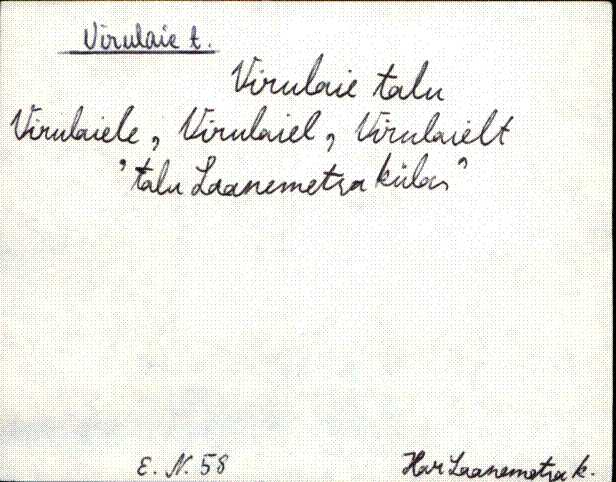 Virulaie t.
Virulaie talu
Virulaiele, Virulaiel, Virulaielt
'talu Laanemetsa külas'
E. N. 58
Har Laanemetsa k.